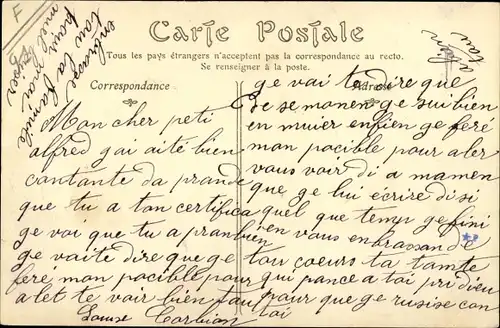 F
Carte Postale
Tous les pays étrangers n'acceptent pas la correspondance au recto.
Se renseigner à la poste.
Correspondance
Adresse
Mon cher peti
alfred gai aité bien
cantante da prande
que tu a ton certifica
ge voi que tu a pran bien
ge vaite dire que ge
feré mon pocible pour
a let te voir bien tau
Louise
ge vai te dire que
se se momen ge sui bien
en muier enfien ge feré
mon pocible pour aler
vous voir di a mamen
que ge lui écrire di si
quel que temp ge fini
en vous enbrassan de
tou coeurs ta tamte
qui pance a toi pri dieu
pour que ge rusise con
toi
enbrasse
tou la famile
pour moi
tau
a bien